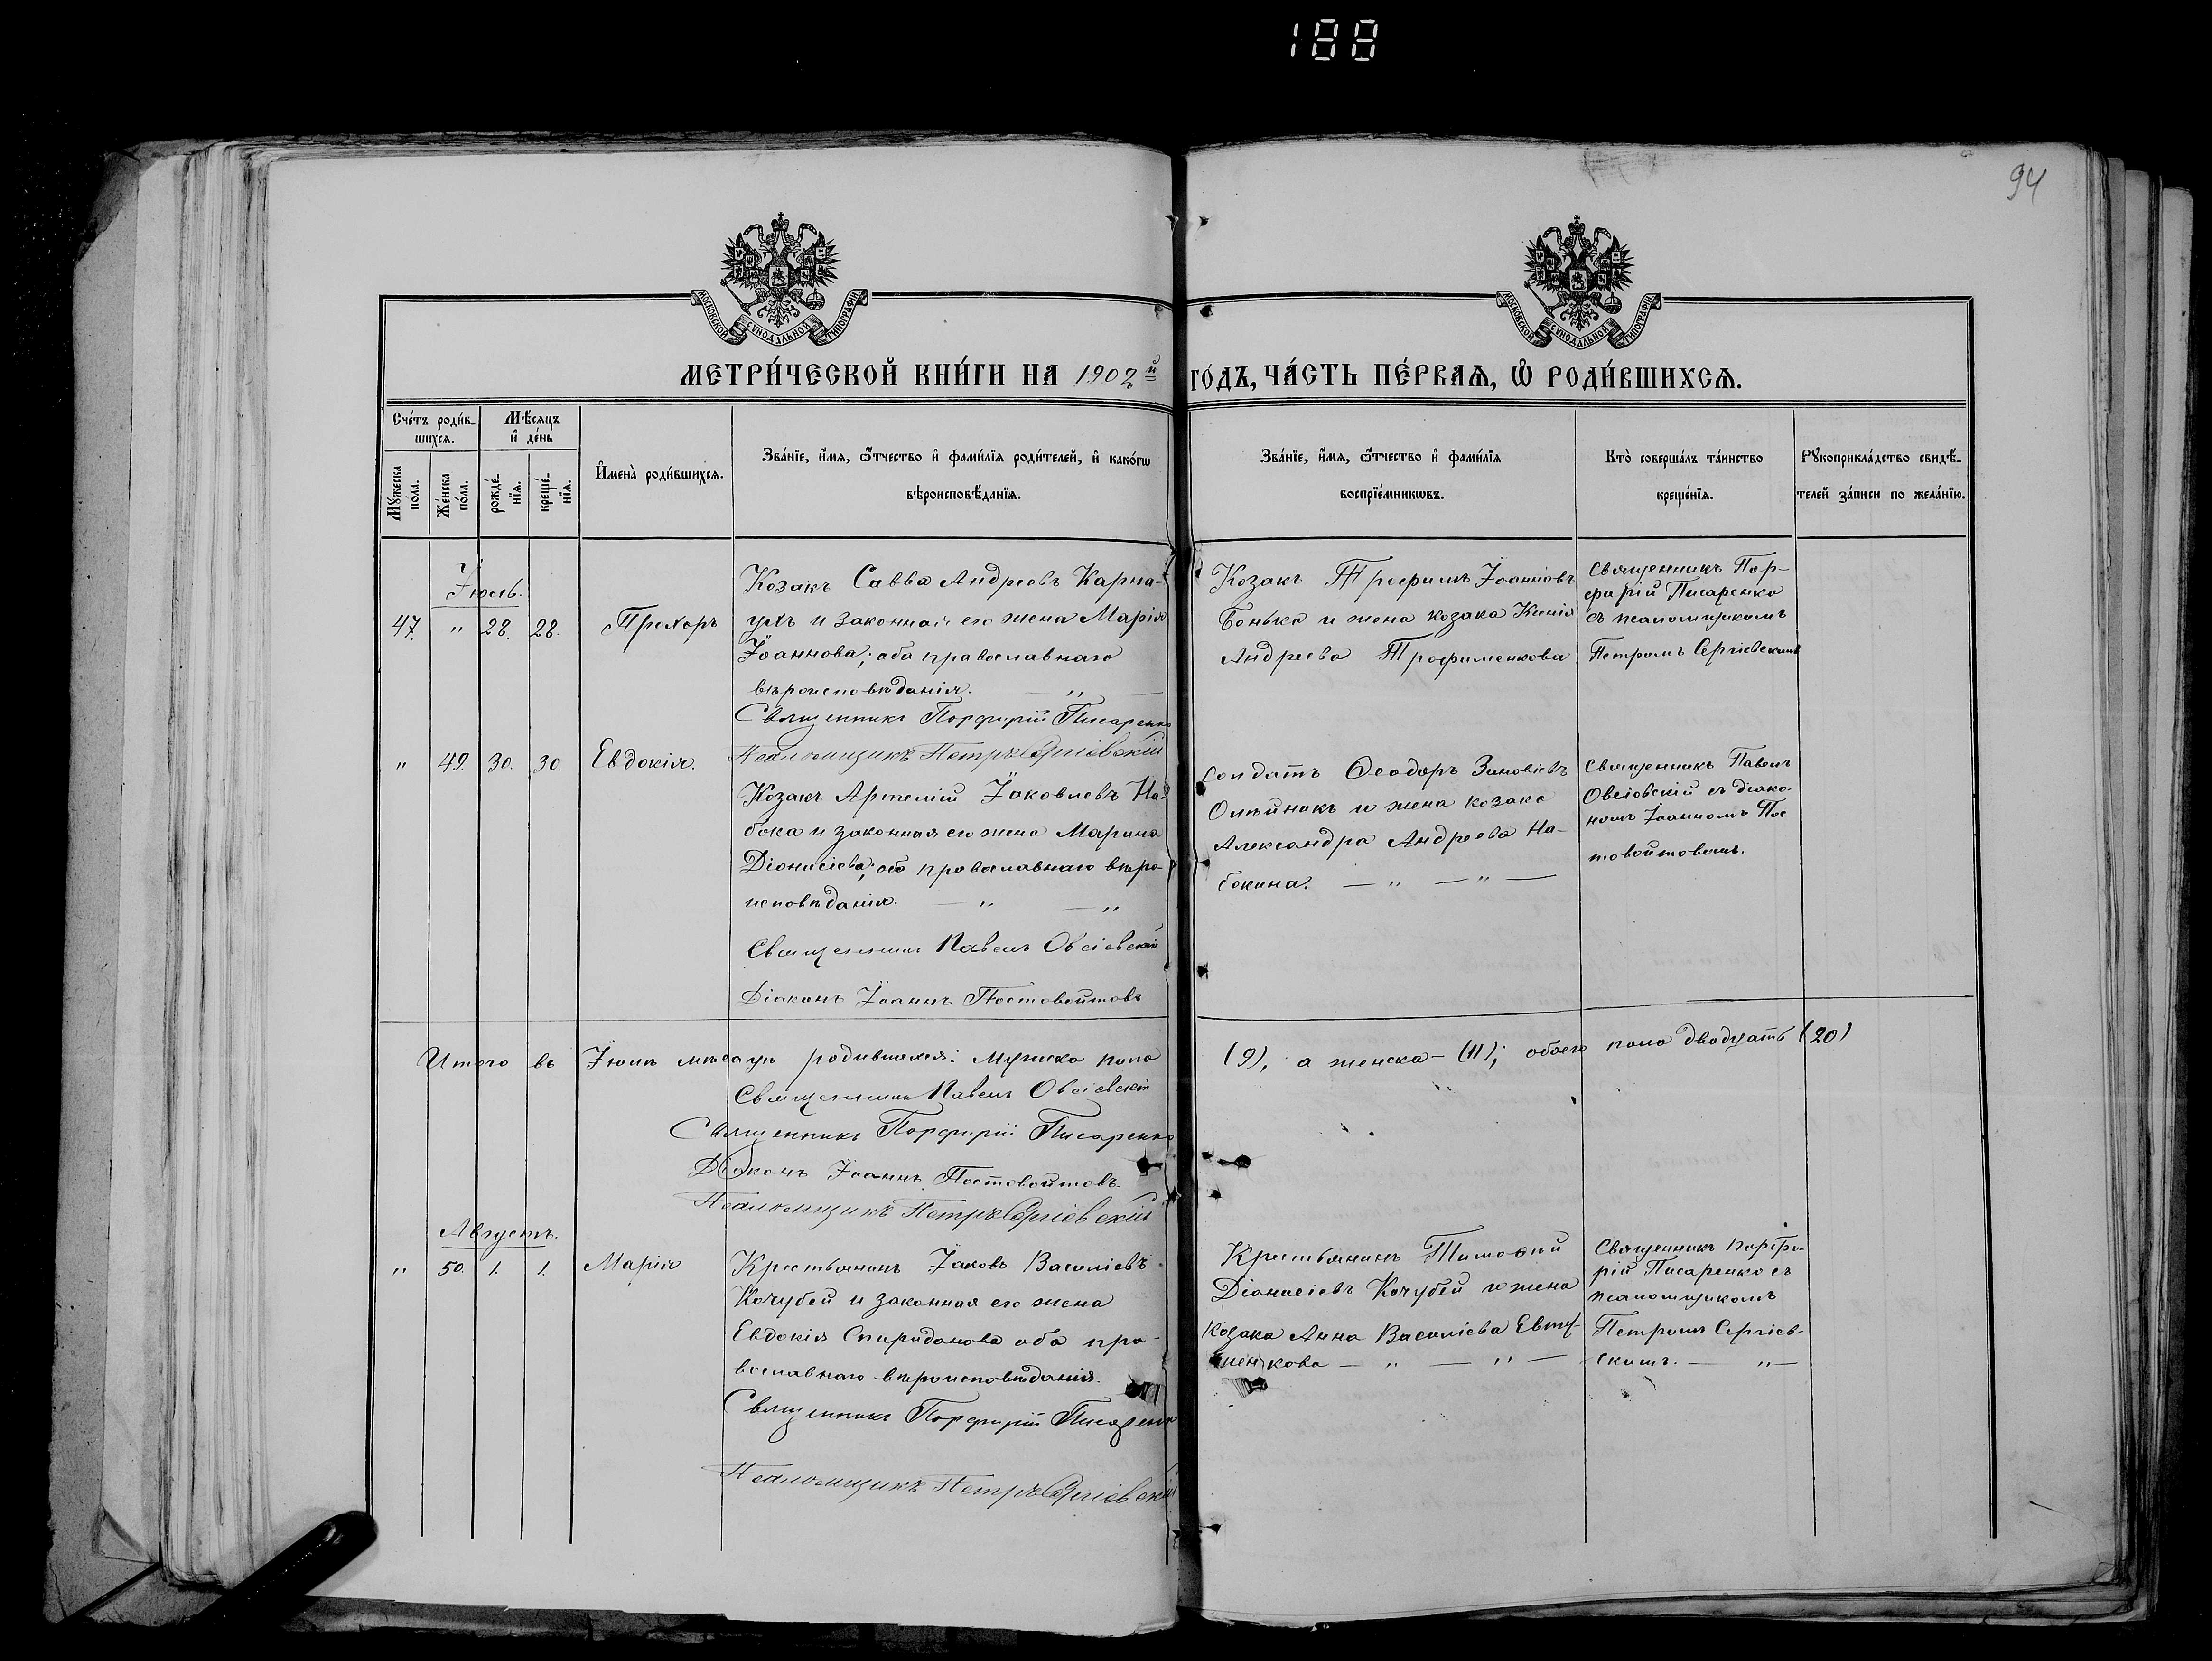 188
94
МОСКОВСКОЙ СѴНОДАЛЬНОЙ ТИПОГРАФІИ
МОСКОВСКОЙ СѴНОДАЛЬНОЙ ТИПОГРАФІИ
МЕТРИ́ЧЕСКОЙ КНИ́ГИ НА 1902й ГО́ДЪ, ЧА́СТЬ ПЕ́РВАѦ, Ѡ҆ РОДИ́ВШИХСѦ.
Сче́тъ роди́в-
шихсѧ.
Мꙋ́жеска по́ла.
Же́нска по́ла.
Мѣ́сѧцъ
и҆ де́нь
рожде́-
нїѧ.
креще́-
нїѧ.
И҆мена̀ роди́вшихсѧ.
Зва́нїе, и҆́мѧ, ѻ҆́тчество и҆ фами́лїѧ роди́телей, и҆ како́гѡ
вѣроисповѣ́данїѧ.
Зва́нїе, и҆́мѧ, ѻ҆́тчество и҆ фами́лїѧ
воспрїе́мникѡвъ.
Кто̀ соверша́лъ та́инство
креще́нїѧ.
Рꙋкоприкла́дство свидѣ́-
телей за́писи по жела́нїю.
Іюль.
47. " 28. 28. Прохоръ
Козакъ Савва Андреевъ Карна-
ухъ и законная его жена Марія
Іоаннова; оба православнаго
вѣроисповѣданія. — " —
Священникъ Порфирій Писаренко
Псаломщикъ Петръ Сергіевскій
Козакъ Трофимъ Іоанновъ
Бонько и жена козака Ксенія
Андреева Трофименкова
Священникъ Пор-
фирій Писаренко
съ псаломщикомъ
Петромъ Сергіевскимъ
" 49. 30. 30. Евдокія.
Козакъ Артемій Іаковлевъ На-
бока и законная его жена Марина
Діонисіева; оба православнаго вѣро-
исповѣданія. — " — "
Священникъ Павелъ Овсіевскій
Діаконъ Іоаннъ Постовойтовъ
Солдатъ Ѳеодоръ Зиновіевъ
Олѣйникъ и жена козака
Александра Андреева На-
бокина. — " — " —
Священникъ Павелъ
Овсіовскій съ діако-
номъ Іоанномъ Пос
товойтовымъ.
Итого въ Іюлѣ мѣсяцѣ родившихся: мужеска пола (9), а женска – (11); обоего пола двадцать (20)
Священникъ Павелъ Овсіевскій
Священникъ Порфирій Писаренко
Діаконъ Іоаннъ Постовойтовъ.
Псаломщикъ Петръ Сергіевскій
Августъ.
" 50. 1. 1. Марія
Крестьянинъ Іаковъ Василіевъ
Кочубей и законная его жена
Евдокія Спиридонова оба пра-
вославнаго вѣроисповѣданія.
Священникъ Порфирій Писаренко
Псаломщикъ Петръ Сергіевскій
Крестьянинъ Тимоѳей
Діонисіевъ Кочубей и жена
козака Анна Василіева Евту-
шенкова — " — " —
Священникъ Порфи-
рій Писаренко съ
псаломщикомъ
Петромъ Сергіев-
скимъ. — " —